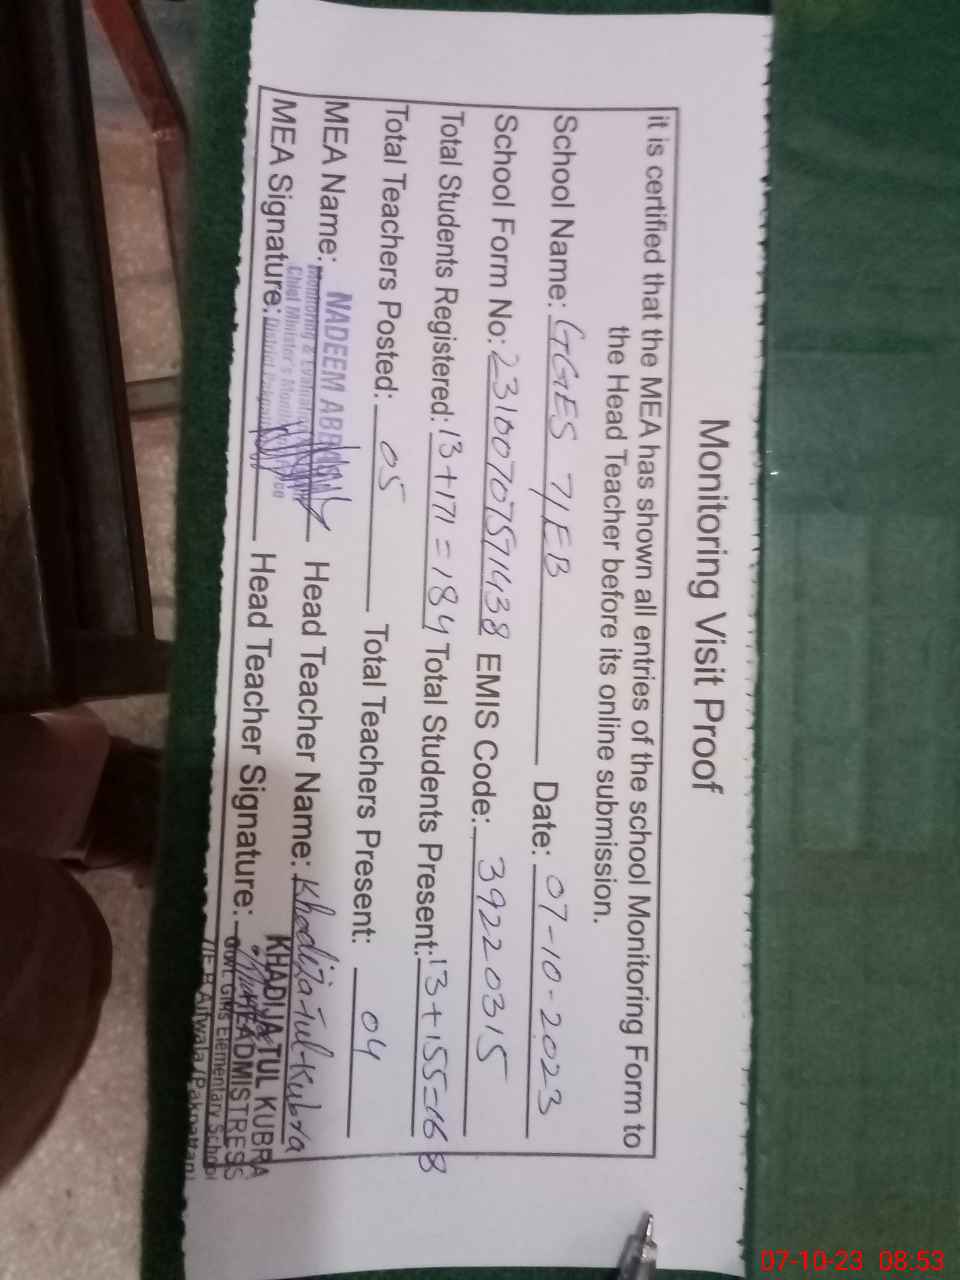 Monitoring Visit Proof
it is certified that the MEA has shown all entries of the school Monitoring Form to
the Head Teacher before its online submission.
School Name: GGES 7/EB Date: 07-10-2023
School Form No: 2310070757 1438 EMIS Code: 39220315
Total Students Registered: 13+171=184 Total Students Present: 13+155=168
Total Teachers Posted: 05 Total Teachers Present: 04
MEA Name: NADEEM Head Teacher Name: Khadija-tul-Kubra
Monitoring & Evaluation
Chief Minister's
MEA Signature: District Head Teacher Signature:
KHADIJA TUL KUBRA
HEADMISTRESS
Govt. Girls Elementary School
7/E.B Arifwala (Pakpattan)
07-10-23 08:53